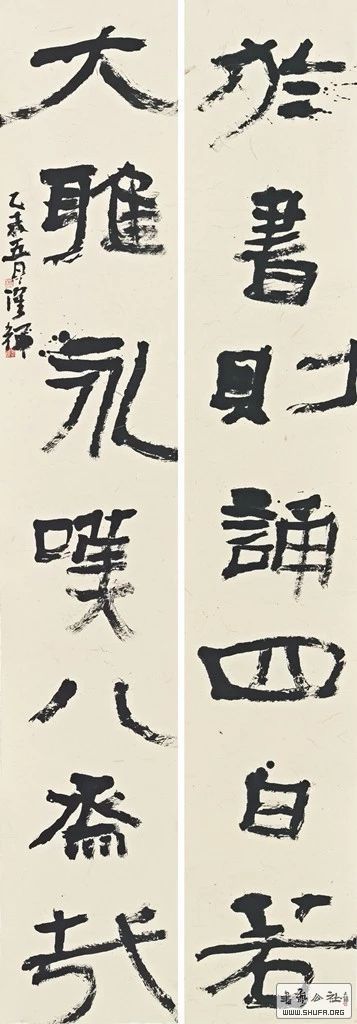 於書則誦四白若
大雅永嘆八哉
五月
公社
WWW.SHUFA.ORG